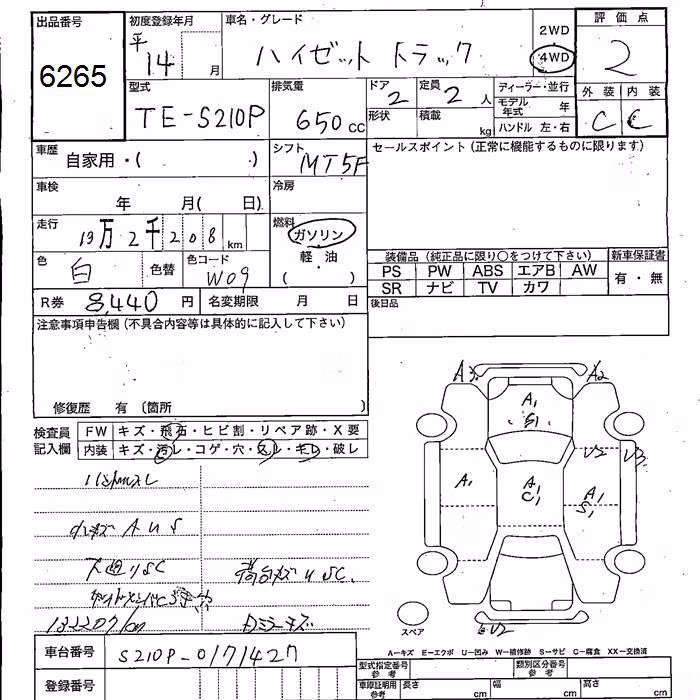 出品番号
6265
初度登録年月
平
14 月
車名・グレード
ハイゼット トラック
2WD
4WD
評価点
2
型式
TE-S210P
排気量
650 cc
ドア
2
形状
定員
2 人
積載
kg
ディーラー・並行
モデル年式 年
ハンドル 左・右
外装 内装
C C
車歴
自家用・( )
シフト
MT5F
セールスポイント(正常に機能するものに限ります)
車検
年 月( 日)
冷房
走行
13万2千208 km
燃料
ガソリン
軽・油
( )
色
白
色替
色コード
W09
装備品(純正品に限り○をつけて下さい)
新車保証書
PS PW ABS エアB AW
有・無
SR ナビ TV カワ
R券 8,440 円
名変期限 月 日
後日品
注意事項申告欄(不具合内容等は具体的に記入して下さい)
修復歴 有 〔箇所 〕
検査員
記入欄
FW キズ・飛石・ヒビ割・リペア跡・X要
内装 キズ・汚レ・コゲ・穴・スレ・キレ・破レ
小キズ A U S
下廻りSC
荷台キズ U SC
132207km
A3
A2
A1
S1
U2
U3
A1
A1
C1
A1
S1
U2
スペア
A—キズ E—エクボ U—凹み W—補修跡 S—サビ C—腐食 XX—交換済
車台番号
S210P-0171427
登録番号
型式指定番号
参考
類別区分番号
参考
車庫証明用
参考
長さ cm 幅 cm 高さ cm